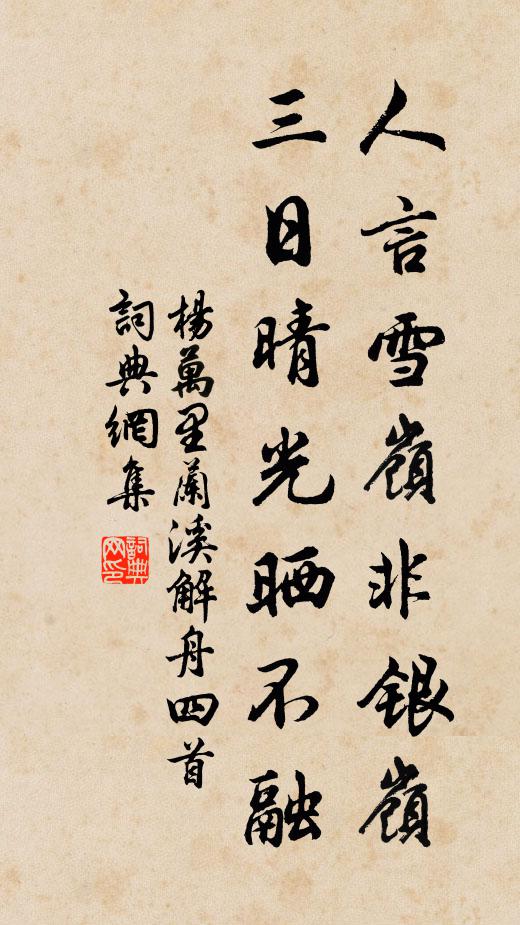 人言雪嶺非銀嶺
三日晴光晒不融
楊萬里蘭溪解舟四首
詞典網集
詞典网印